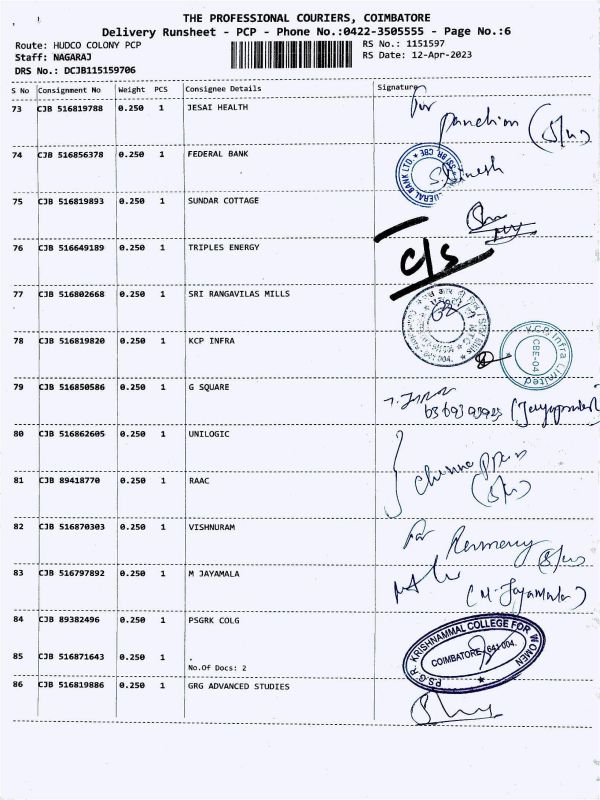 THE PROFESSIONAL COURIERS, COIMBATORE
Delivery Runsheet - PCP - Phone No.:0422-3505555 - Page No.:6
Route: HUDCO COLONY PCP
RS No.: 1151597
Staff: NAGARAJ
RS Date: 12-Apr-2023
DRS No.: DCJB115159706
S No Consignment No Weight PCS Consignee Details Signature
73 CJB 516819788 0.250 1 JESAI HEALTH
for
(S/w)
74 CJB 516856378 0.250 1 FEDERAL BANK
S. Dinesh
75 CJB 516819893 0.250 1 SUNDAR COTTAGE
76 CJB 516649189 0.250 1 TRIPLES ENERGY
C/S
77 CJB 516802668 0.250 1 SRI RANGAVILAS MILLS
78 CJB 516819820 0.250 1 KCP INFRA
KCP Infra Limited
CBE-04
79 CJB 516850586 0.250 1 G SQUARE
80 CJB 516862605 0.250 1 UNILOGIC
81 CJB 89418770 0.250 1 RAAC
(S/w)
82 CJB 516870303 0.250 1 VISHNURAM
for
83 CJB 516797892 0.250 1 M JAYAMALA
(M. Jayamala)
84 CJB 89382496 0.250 1 PSGRK COLG
P.S.G.R. KRISHNAMMAL COLLEGE FOR WOMEN
COIMBATORE - 641 004.
85 CJB 516871643 0.250 1 .
No.Of Docs: 2
86 CJB 516819886 0.250 1 GRG ADVANCED STUDIES